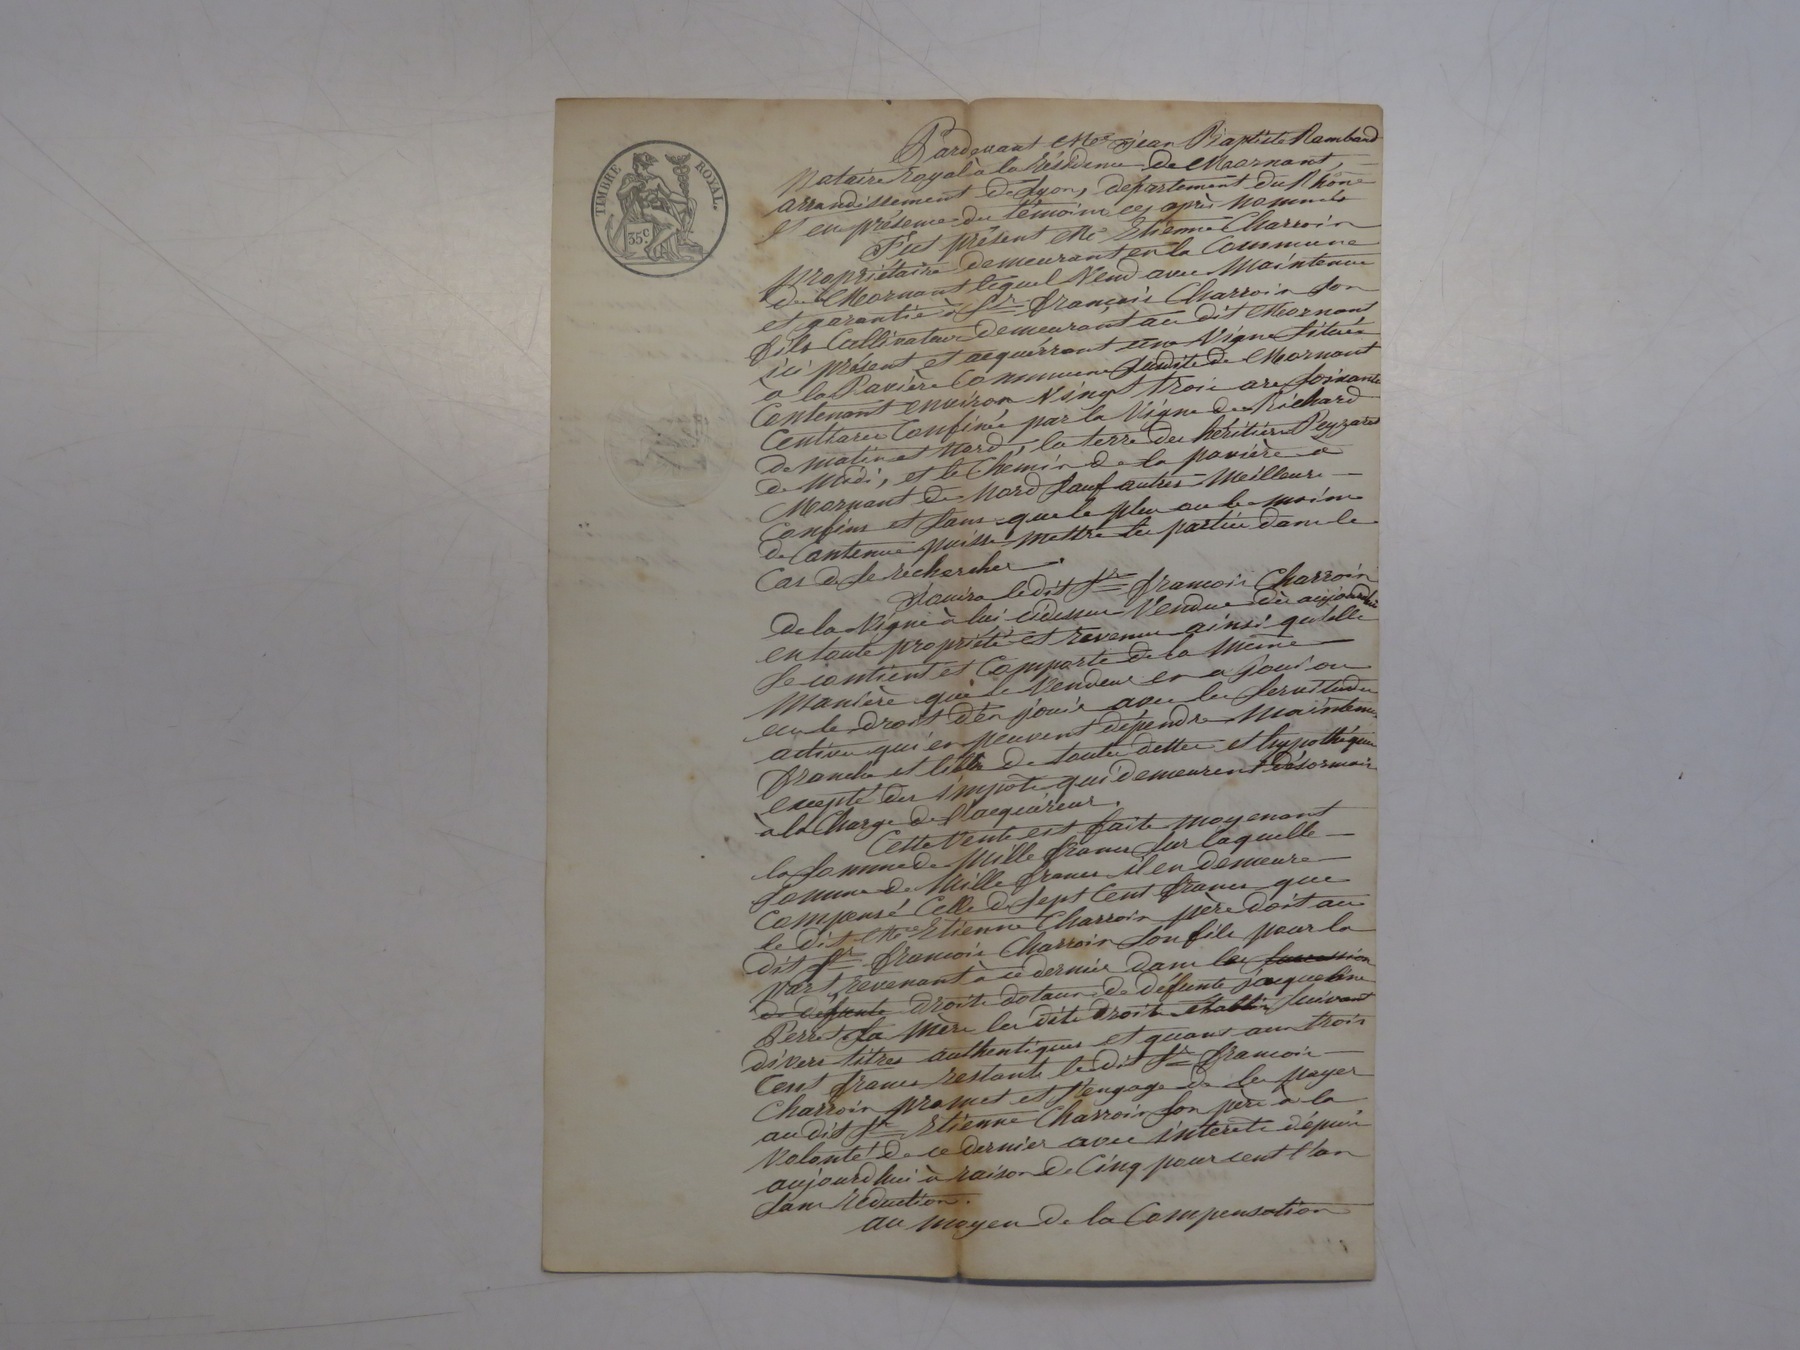 TIMBRE ROYAL.
35c
Pardevant Me Jean Baptiste Rambaud
Notaire royal à la résidence de Mornant,
arrondissement de Lyon, département du Rhône
et en présence des témoins cy après nommés
Fut présent Me Etienne Charroin
propriétaire demeurant en la Commune
de Mornant lequel Vend avec Maintenue
et garantie à Sr françois Charroin son
fils Cultivateur demeurant au dit Mornant
ici présent et acquérrant une Vigne située
à la Pavière Commune susdite de Mornant
Contenant environ Vingt trois ares soixante
Centiares Confinée par la Vigne de Richard
de matin et Nord, la terre des héritiers Peyzaret
de Midi, et le Chemin de la pavière à
Mornant de Nord sauf autres Meilleurs
Confins et sans que le plus ou le moins
de Contenue puisse mettre les parties dans le
Cas de se rechercher.
Jouira le dit Sr françois Charroin
de la Vigne à lui cidessus Vendue dès aujourdhui
en toute propriété et revenus ainsi qu'elle
se contient et Comporte de la Même
Manière que le Vendeur en a joui ou
eu le droit d'en jouir avec les servitudes
actives qui en peuvent dépendre Maintenue
franche et libre de toutes dettes et hypothèques
excepté des impots qui demeurent désormais
à la Charge de l'acquéreur.
Cette Vente est faite moyenant
la somme de Mille francs sur laquelle
somme de Mille francs il en demeure
Compensé Celle de Sept Cent francs que
le dit Me Etienne Charroin père doit au
dit Sr françois Charroin son fils pour la
part revenant à ce dernier dans les succession
de défunte droits dotaux de défunte jacqueline
Perret sa Mère les dits droits établis suivant
divers titres authentiques et quant aux trois
Cent francs restants le dit Sr françois
Charroin promet et s'engage de les payer
au dit Sr Etienne Charroin son père à la
Volonté de ce dernier avec interets dépuis
aujourdhui à raison de Cinq pour cent l'an
sans réduction.
au moyen de la Compensation